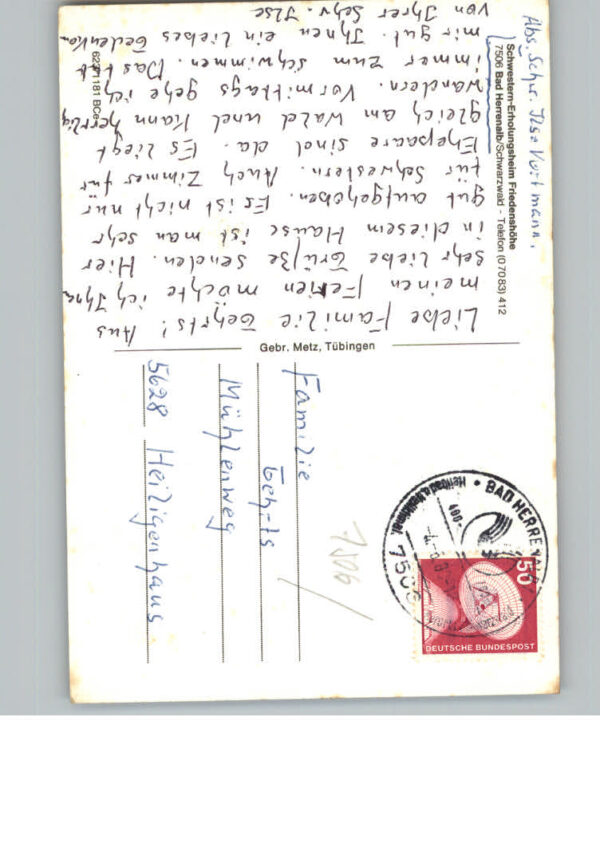 Abs. Schw. Ilse
Schwestern-Erholungsheim Friedenshöhe
7506 Bad Herrenalb/Schwarzwald - Telefon (0 70 83) 412
Liebe Familie Gehrts! Aus
meinen Ferien möchte ich Ihnen
sehr liebe Grüße senden. Hier
in diesem Hause ist man sehr
gut aufgehoben. Es ist nicht nur
für Schwestern. Auch Zimmer für
Ehepaare sind da. Es liegt
gleich am Wald und kann herrlich
wandern. Vormittags gehe ich
immer zum schwimmen. Das tut
mir gut. Ihnen ein liebes Gedenken
von Ihrer Schw. Ilse
Gebr. Metz, Tübingen
Familie
Gehrts
Mühlenweg
5628 Heiligenhaus
7506
BAD HERRENALB
7506
50
DEUTSCHE BUNDESPOST